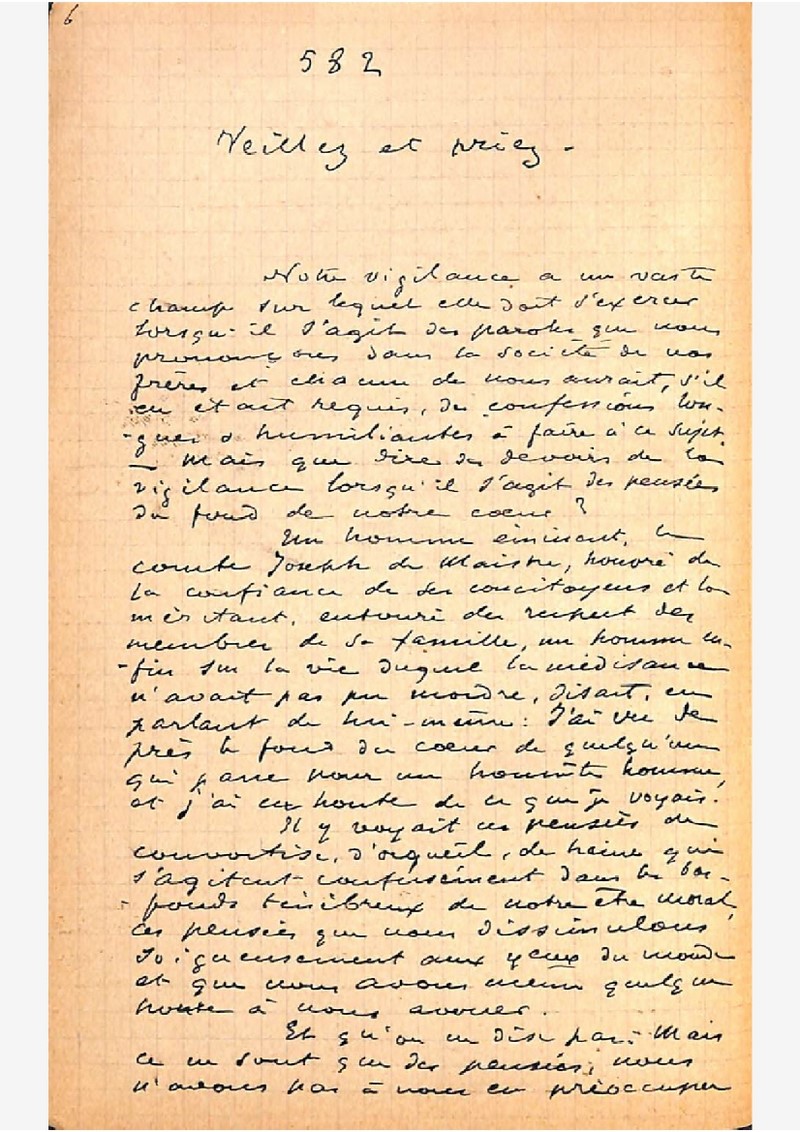 6
582
Veillez et priez -
Notre vigilance a un vaste
champ sur lequel elle doit s'exercer
lorsqu'il s'agit des paroles que nous
prononçons dans la société de nos
frères et chacun de nous aurait, s'il
en était requis, des confessions lon-
-gues & humiliantes à faire à ce sujet.
— Mais que dire des devoirs de la
vigilance lorsqu'il s'agit des pensées
du fond de notre coeur ?
Un homme éminent, le
comte Joseph de Maistre, honoré de
la confiance de ses concitoyens et la
méritant, entouré du respect des
membres de sa famille, un homme en-
-fin sur la vie duquel la médisance
n'avait pas pu mordre, disait, en
parlant de lui-même : J'ai vu de
près le fond du coeur de quelqu'un
qui passe pour un honnête homme,
et j'ai eu honte de ce que je voyais.
Il y voyait ces pensées de
convoitise, d'orgueil, de haine qui
s'agitent confusément dans les bas-
-fonds ténébreux de notre être moral,
ces pensées que nous dissimulons
soigneusement aux yeux du monde
et que nous avons même quelque
honte à nous avouer.
Et qu'on ne dise pas : Mais
ce ne sont que des pensées ; nous
n'avons pas à nous en préoccuper